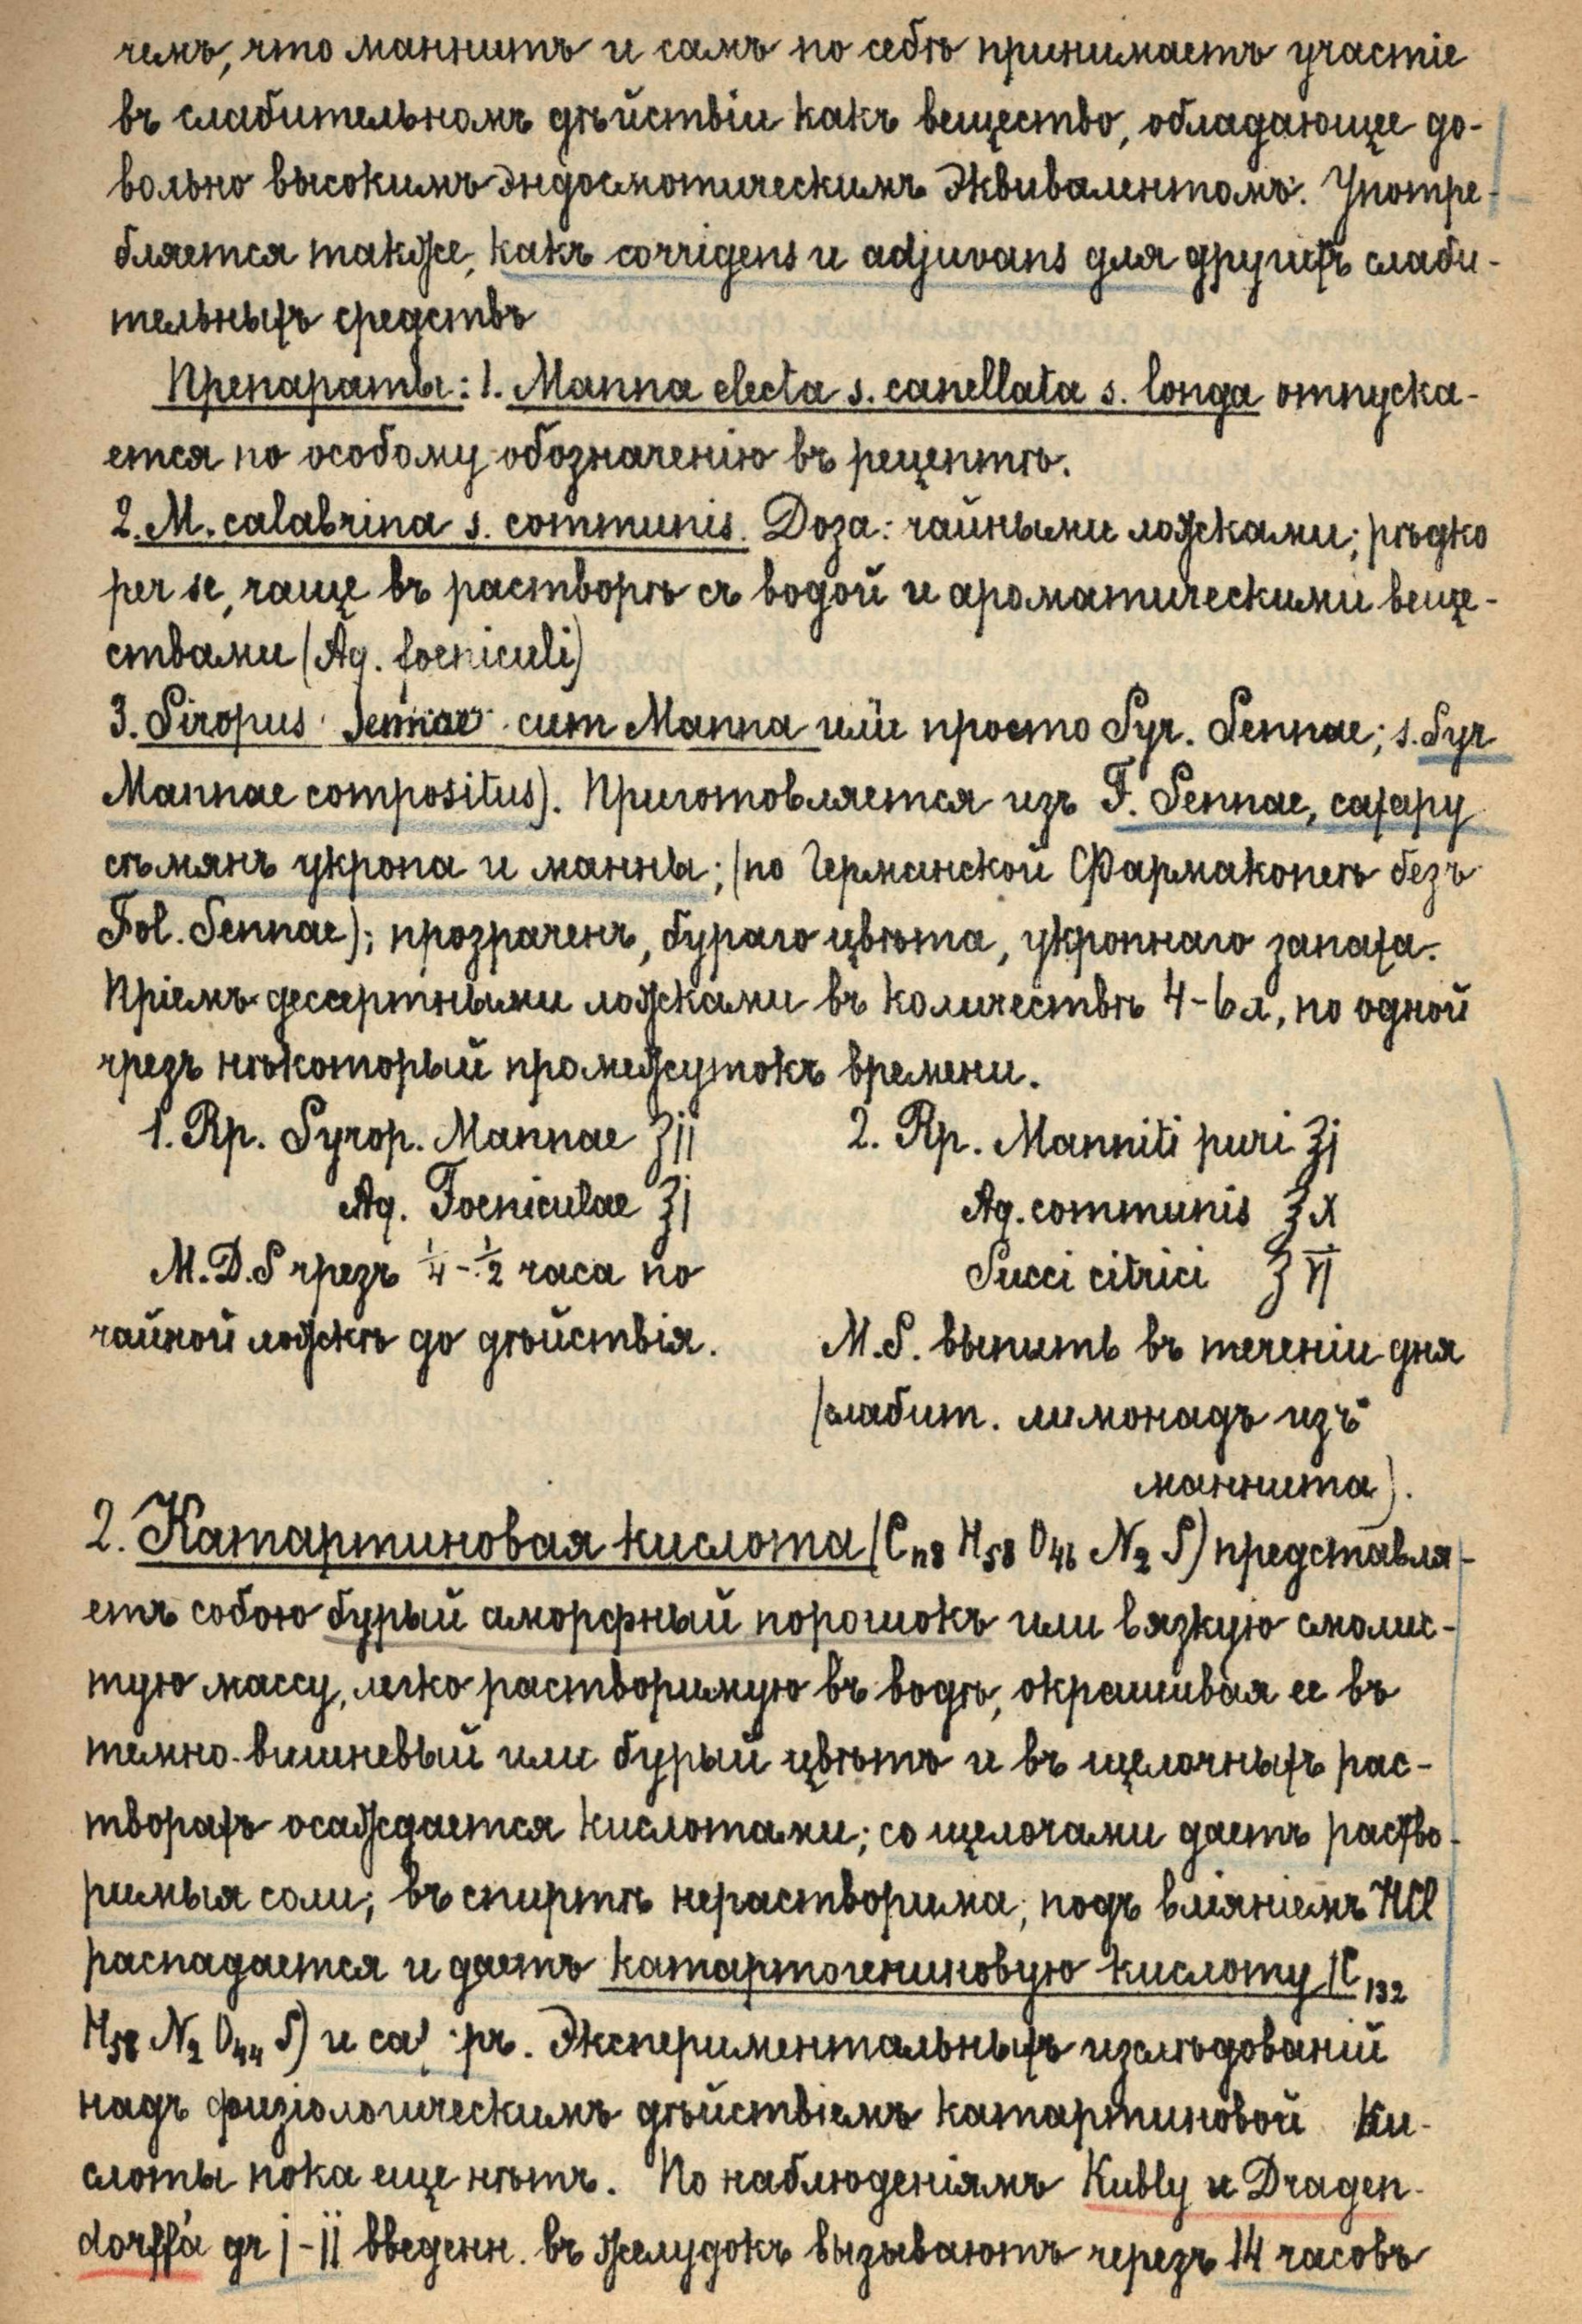 чемъ, что маннитъ и самъ по себѣ принимаетъ участіе
въ слабительномъ дѣйствіи какъ вещество, обладающее до-
вольно высокимъ эндосмотическимъ эквивалентомъ. Употре-
бляется также, какъ corrigens и adjuvans для другихъ слаби-
тельныхъ средствъ
Препараты: 1. Manna electa s. canellata s. longa отпуска-
ется по особому обозначенію въ рецептѣ.
2. M. calabrina s. communis. Доза: чайными ложками; рѣдко
per se, чаще въ растворѣ съ водой и ароматическими веще-
ствами (Aq. foeniculi)
3. Siropus Sennae cum Manna или просто Syr. Sennae; s. Syr
Mannae compositus). Приготовляется изъ F. Sennae, сахару
сѣмянъ укропа и манны; (по Германской Фармакопеѣ безъ
Fol. Sennae); прозраченъ, бураго цвѣта, укропнаго запаха.
Пріемъ дессертными ложками въ количествѣ 4-6 л, по одной
чрезъ нѣкоторый промежутокъ времени.
1. Rp. Syrop. Mannae ℥ii
Aq. Foeniculae ℥j
M.D.S чрезъ 1/4-1/2 часа по
чайной ложкѣ до дѣйствія.
2. Rp. Manniti puri ℥j
Aq. communis ℥x
Succi citrici ℥vj
M.S. выпить въ теченіи дня
(слабит. лимонадъ изъ
маннита).
2. Катартиновая кислота (Cn8 H58 O46 N2 S) представля-
етъ собою бурый аморфный порошокъ или вязкую смолис-
тую массу, легко растворимую въ водѣ, окрашивая ее въ
темно-вишневый или бурый цвѣтъ и въ щелочныхъ рас-
творахъ осаждается кислотами; со щелочами даетъ раство-
римыя соли; въ спиртѣ нерастворима; подъ вліяніемъ HCl
распадается и даетъ катартогениновую кислоту (C132
H58 N2 O44 S) и сахаръ. Экспериментальныхъ изслѣдованій
надъ физіологическимъ дѣйствіемъ катартиновой ки-
слоты пока еще нѣтъ. По наблюденіямъ Kubly и Dragen-
dorff'a gr j-ii введенн. въ желудокъ вызываютъ черезъ 14 часовъ